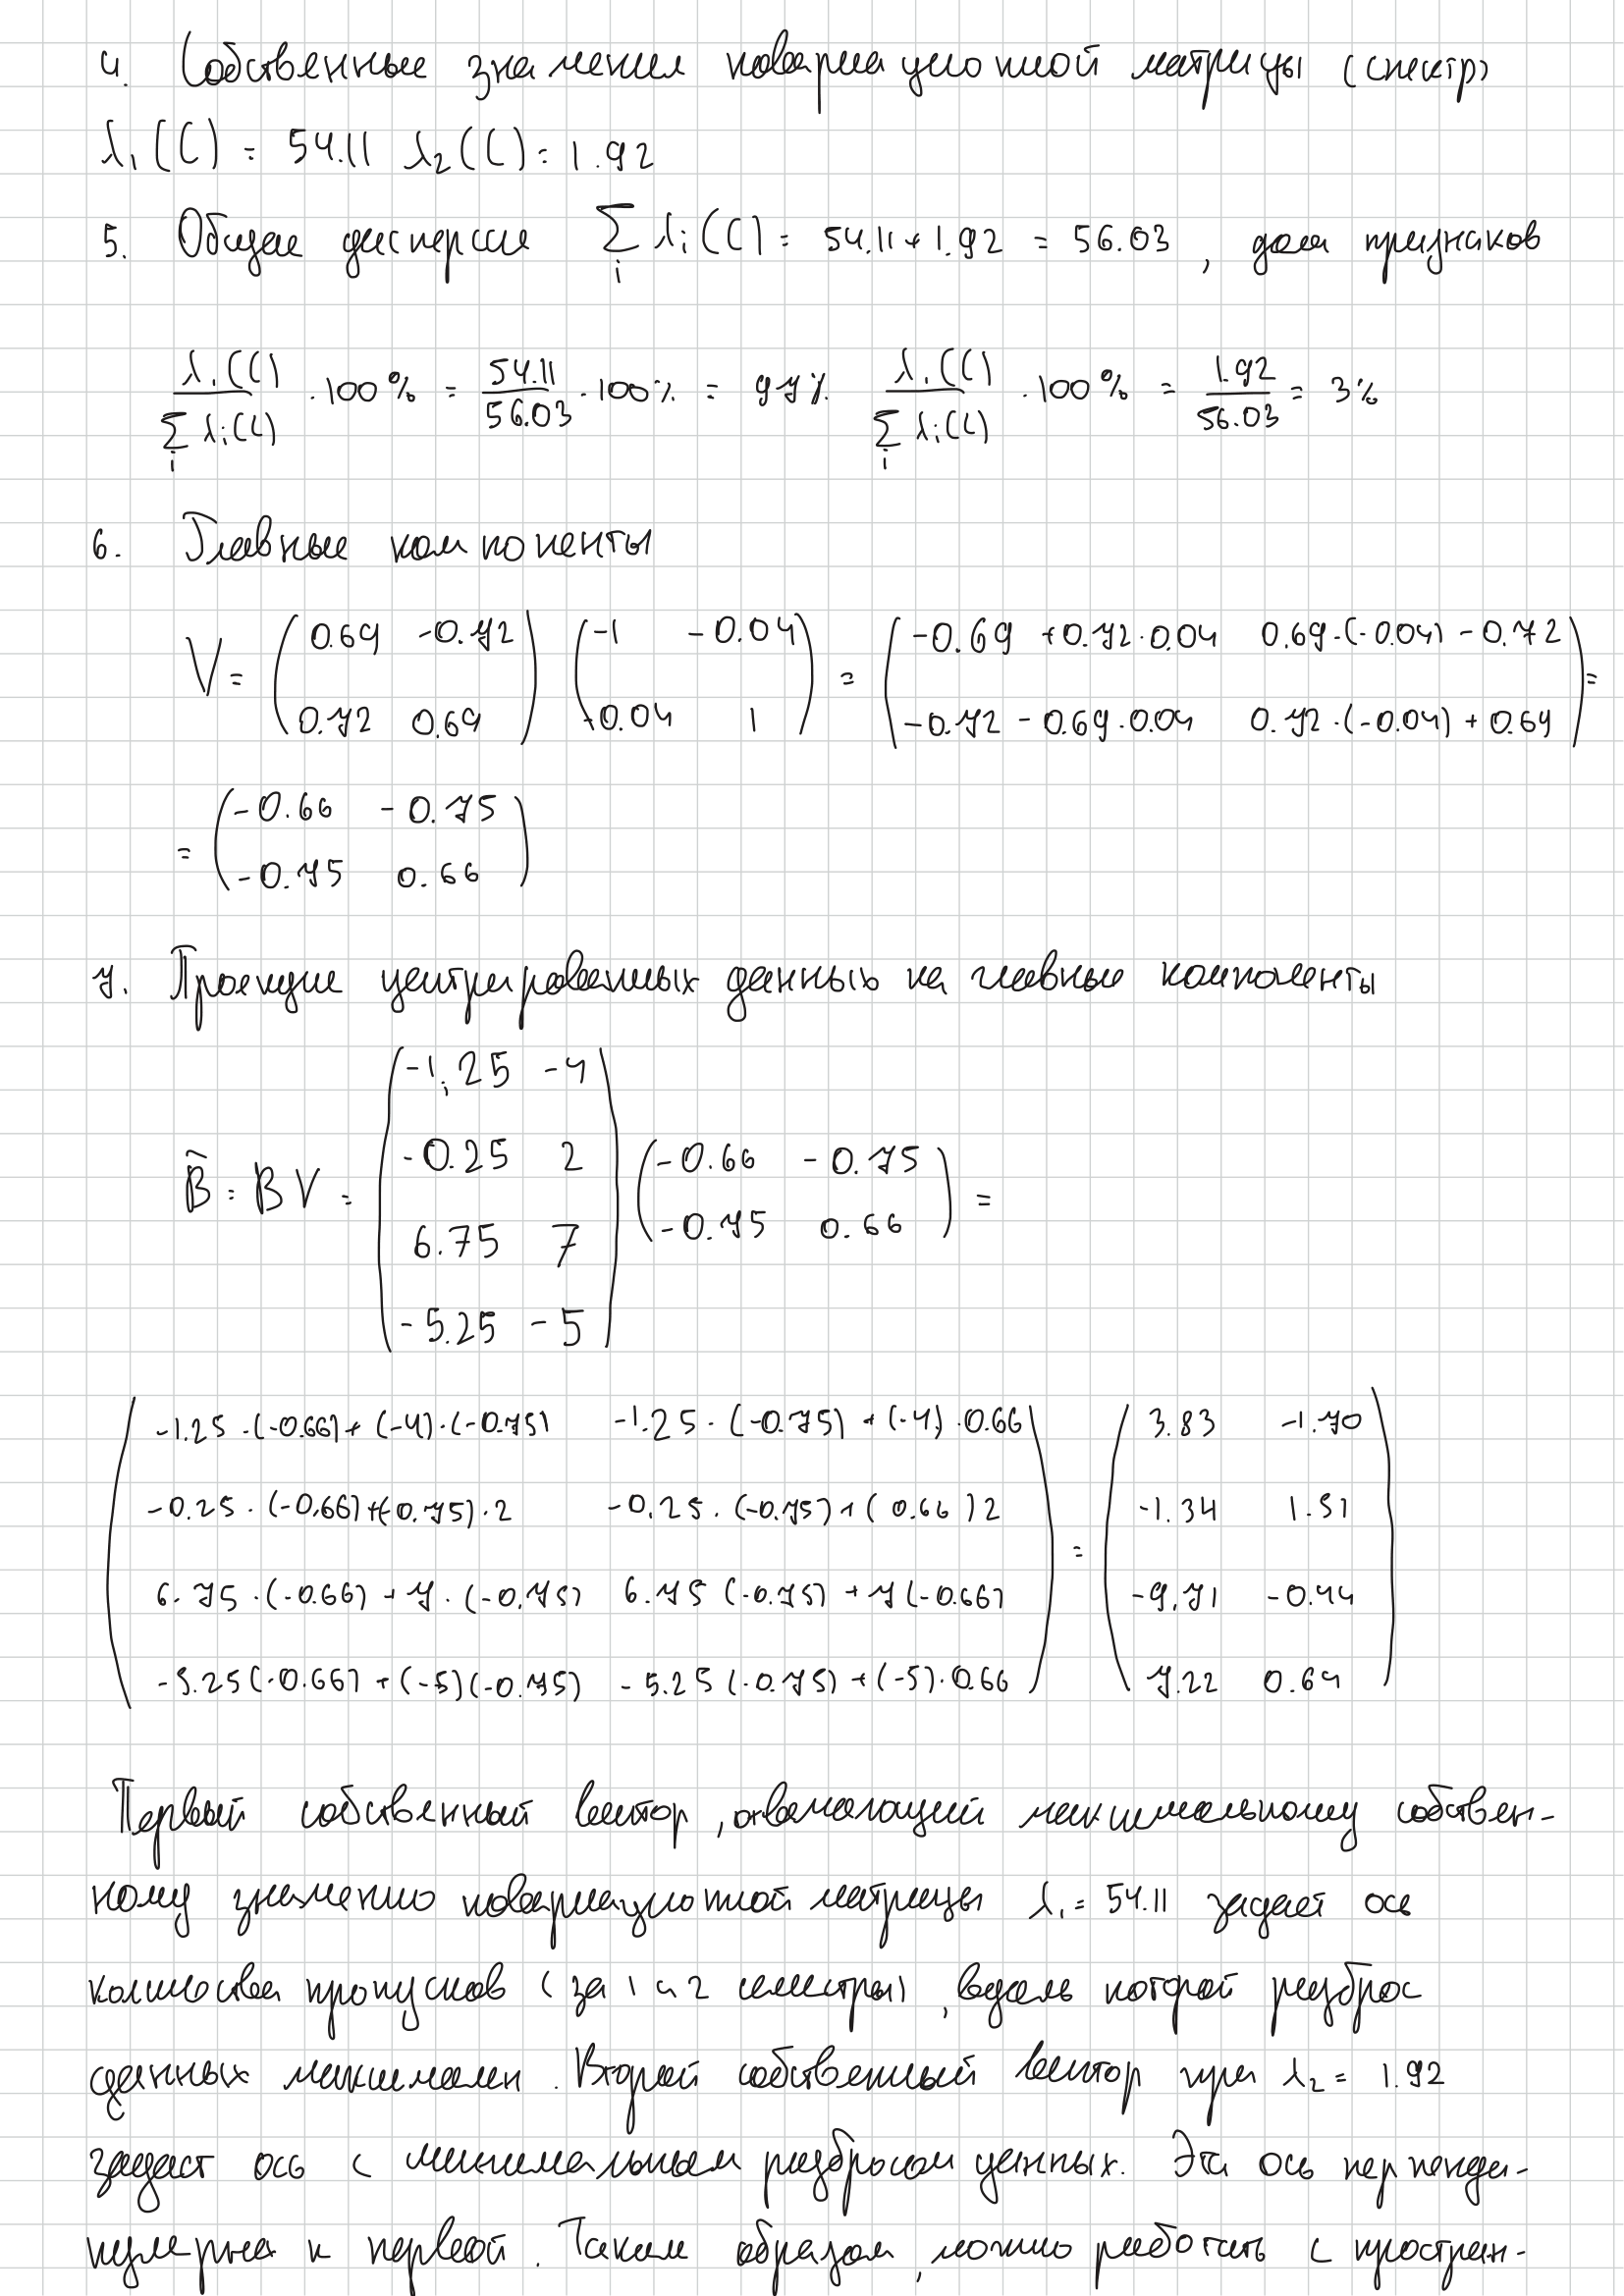 4. Собственные значения ковариационной матрицы (спектр)
λ₁(C) = 54.11 λ₂(C) = 1.92
5. Общая дисперсия ∑ᵢ λᵢ(C) = 54.11 + 1.92 = 56.03, доля признаков
λ₁(C) / ∑ᵢ λᵢ(C) · 100% = 54.11 / 56.03 · 100% = 97% λ₁(C) / ∑ᵢ λᵢ(C) · 100% = 1.92 / 56.03 = 3%
6. Главные компоненты
V = ( 0.69 -0.72 ; 0.72 0.69 ) ( -1 -0.04 ; -0.04 1 ) = ( -0.69 + 0.72 · 0.04 0.69 · (-0.04) - 0.72 ; -0.72 - 0.69 · 0.04 0.72 · (-0.04) + 0.69 ) =
= ( -0.66 -0.75 ; -0.75 0.66 )
7. Проекции центрированных данных на главные компоненты
B̃ = BV = ( -1,25 -4 ; -0.25 2 ; 6.75 7 ; -5.25 -5 ) ( -0.66 -0.75 ; -0.75 0.66 ) =
( -1.25 · (-0.66) + (-4) · (-0.75) -1.25 · (-0.75) + (-4) · 0.66 ) = ( 3.83 -1.70
-0.25 · (-0,66) + (-0.75) · 2 -0,25 · (-0.75) + (0.66) 2 -1.34 1.51
6.75 · (-0.66) + 7 · (-0,75) 6.75 (-0.75) + 7 (-0.66) -9,71 -0.44
-5.25 (-0.66) + (-5)(-0.75) -5.25 (-0.75) + (-5) · 0.66 7.22 0.64 )
Первый собственный вектор, отвечающий максимальному собствен-
ному значению ковариационной матрицы λ₁ = 54.11 задает ось
количества пропусков (за 1 и 2 семестры), вдоль которой разброс
данных максимален. Второй собственный вектор при λ₂ = 1.92
задаст ось с минимальным разбросом данных. Эта ось перпенди-
кулярна к первой. Таким образом, можно работать с простран-